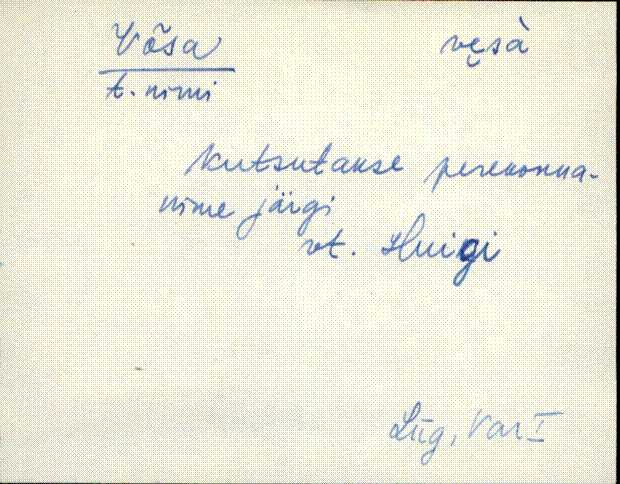 Võsa vęsà
t. nimi
Kutsutakse perekonna-
nime järgi
vt. Huigi
Lüg, Var I